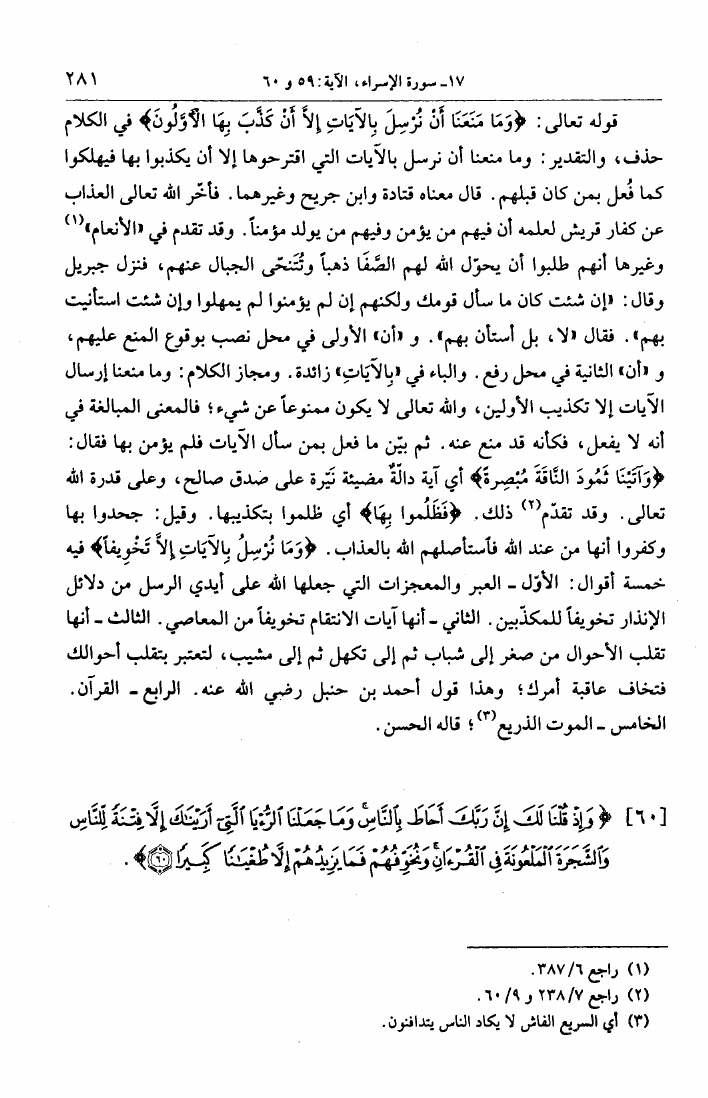 ١٧ـ سورة الإسراء، الآية: ٥٩ و ٦٠ ٢٨١
قوله تعالى: ﴿وَمَا مَنَعَنَا أَنْ نُرْسِلَ بِالآيَاتِ إِلاَّ أَنْ كَذَّبَ بِهَا الأَوَّلُونَ﴾ في الكلام
حذف، والتقدير: وما منعنا أن نرسل بالآيات التي اقترحوها إلا أن يكذبوا بها فيهلكوا
كما فُعل بمن كان قبلهم. قال معناه قتادة وابن جريج وغيرهما. فأخّر الله تعالى العذاب
عن كفار قريش لعلمه أن فيهم من يؤمن وفيهم من يولد مؤمناً. وقد تقدم في «الأنعام»(١)
وغيرها أنهم طلبوا أن يحوّل الله لهم الصَّفَا ذهباً وتُتَنحّى الجبال عنهم، فنزل جبريل
وقال: «إن شئت كان ما سأل قومك ولكنهم إن لم يؤمنوا لم يمهلوا وإن شئت استأنيت
بهم». فقال «لا، بل أستأن بهم». و «أن» الأولى في محل نصب بوقوع المنع عليهم،
و «أن» الثانية في محل رفع. والباء في «بِالآيَاتِ» زائدة. ومجاز الكلام: وما منعنا إرسال
الآيات إلا تكذيب الأولين، والله تعالى لا يكون ممنوعاً عن شيء؛ فالمعنى المبالغة في
أنه لا يفعل، فكأنه قد منع عنه. ثم بيّن ما فعل بمن سأل الآيات فلم يؤمن بها فقال:
﴿وَآتَيْنَا ثَمُودَ النَّاقَةَ مُبْصِرةً﴾ أي آية دالّةٌ مضيئة نيّرة على صدق صالح، وعلى قدرة الله
تعالى. وقد تقدّم(٢) ذلك. ﴿فَظَلَمُوا بِهَا﴾ أي ظلموا بتكذيبها. وقيل: جحدوا بها
وكفروا أنها من عند الله فاستأصلهم الله بالعذاب. ﴿وَمَا نُرْسِلُ بِالآيَاتِ إِلاَّ تَخْوِيفاً﴾ فيه
خمسة أقوال: الأوّل ـ العبر والمعجزات التي جعلها الله على أيدي الرسل من دلائل
الإنذار تخويفاً للمكذّبين. الثاني ـ أنها آيات الانتقام تخويفاً من المعاصي. الثالث ـ أنها
تقلب الأحوال من صغر إلى شباب ثم إلى تكهل ثم إلى مشيب، لتعتبر بتقلب أحوالك
فتخاف عاقبة أمرك؛ وهذا قول أحمد بن حنبل رضي الله عنه. الرابع ـ القرآن.
الخامس ـ الموت الذريع(٣)؛ قاله الحسن.
[٦٠] ﴿وَإِذْ قُلْنَا لَكَ إِنَّ رَبَّكَ أَحَاطَ بِالنَّاسِ ۚ وَمَا جَعَلْنَا الرُّءْيَا الَّتِي أَرَيْنَاكَ إِلَّا فِتْنَةً لِّلنَّاسِ
وَالشَّجَرَةَ الْمَلْعُونَةَ فِي الْقُرْءَانِ ۚ وَنُخَوِّفُهُمْ فَمَا يَزِيدُهُمْ إِلَّا طُغْيَانًا كَبِيرًا ﴿٦٠﴾﴾.
(١) راجع ٣٨٧/٦.
(٢) راجع ٢٣٨/٧ و ٦٠/٩.
(٣) أي السريع الفاش لا يكاد الناس يتدافنون.